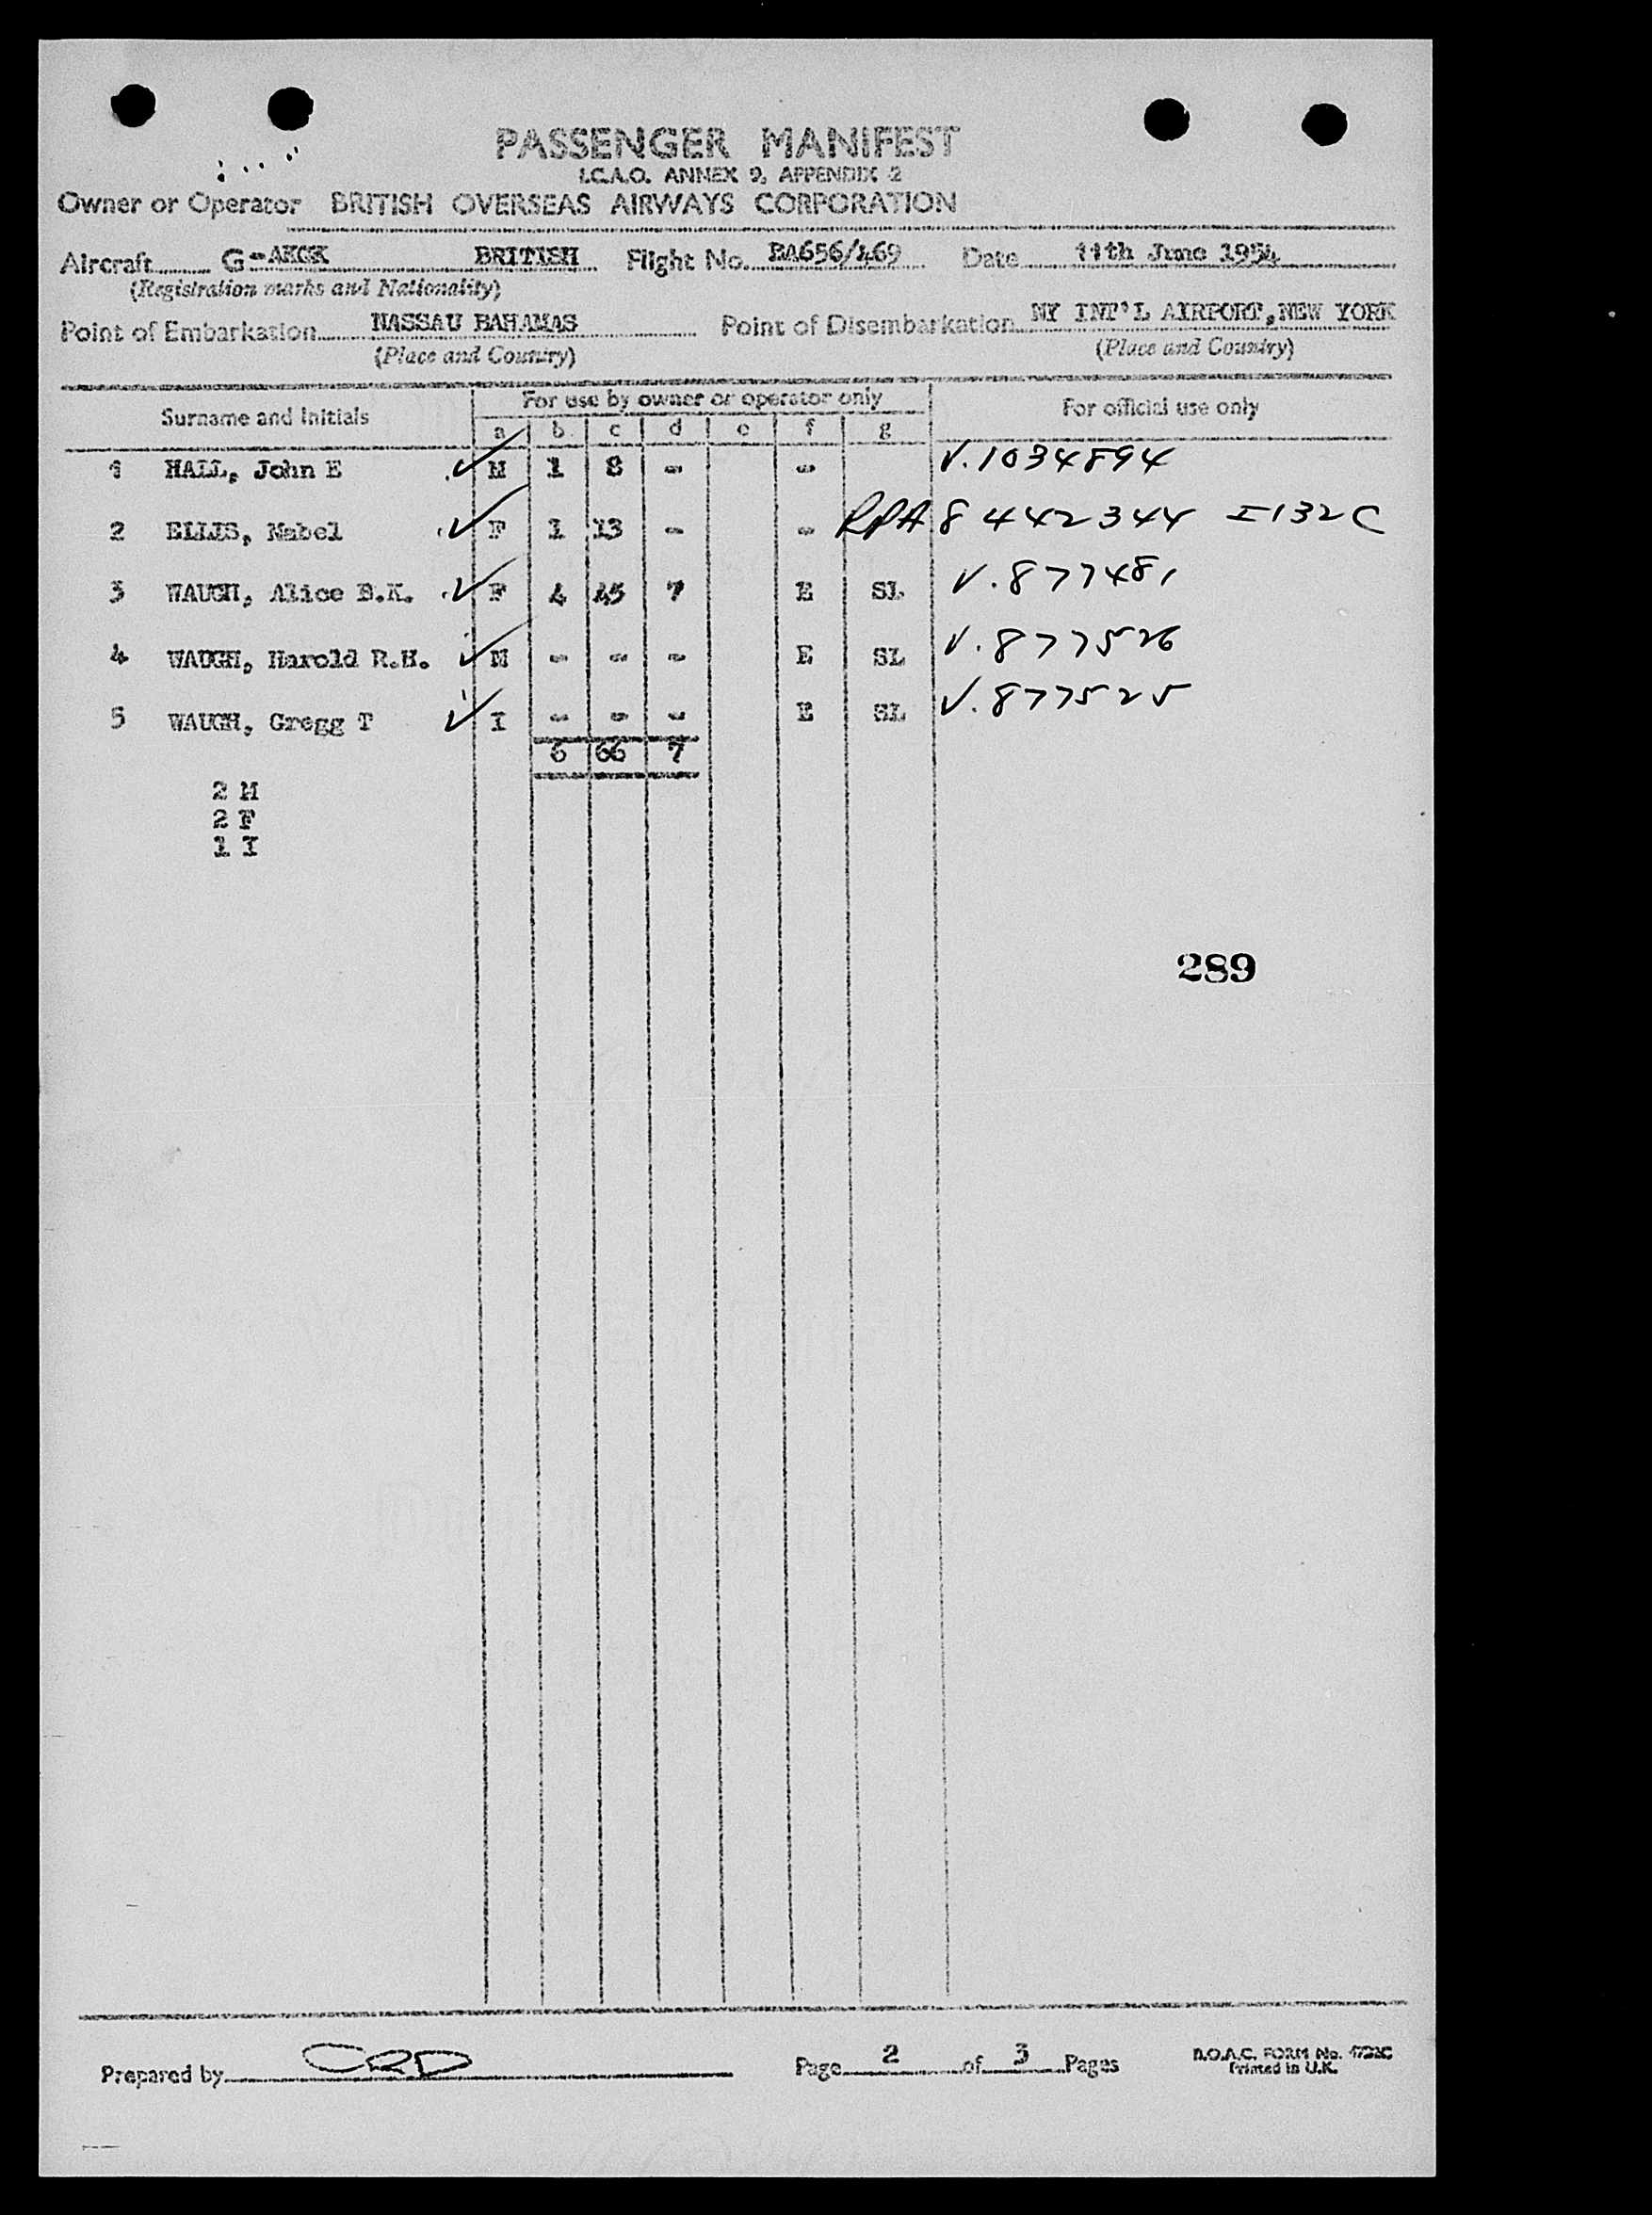 PASSENGER MANIFEST
I.C.A.O. ANNEX 9, APPENDIX 2
Owner or Operator BRITISH OVERSEAS AIRWAYS CORPORATION
Aircraft G-AKGK BRITISH Flight No. BA656/469 Date 11th June 1954
(Registration marks and Nationality)
Point of Embarkation NASSAU BAHAMAS Point of Disembarkation NY INT'L AIRPORT, NEW YORK
(Place and Country) (Place and Country)
Surname and Initials For use by owner or operator only For official use only
a b c d e f g
1 HALL, John E ✓ M 1 8 - - V.1034894
2 ELLIS, Mabel ✓ F 1 13 - - 8442344 I132C
3 WAUGH, Alice B.K. ✓ F 4 45 7 E SL V.877481
4 WAUGH, Harold R.H. ✓ M - - - E SL V.877526
5 WAUGH, Gregg T ✓ I - - - E SL V.877525
6 66 7
2 M
2 F
1 I
289
Prepared by CRD Page 2 of 3 Pages
B.O.A.C. FORM No.
Printed in U.K.